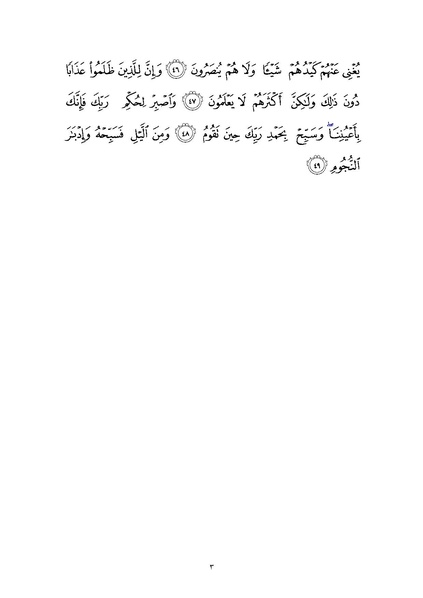 يُغْنِى عَنْهُمْ كَيْدُهُمْ شَيْـًٔا وَلَا هُمْ يُنصَرُونَ ٤٦ وَإِنَّ لِلَّذِينَ ظَلَمُوا۟ عَذَابًا
دُونَ ذَٰلِكَ وَلَـٰكِنَّ أَكْثَرَهُمْ لَا يَعْلَمُونَ ٤٧ وَٱصْبِرْ لِحُكْمِ رَبِّكَ فَإِنَّكَ
بِأَعْيُنِنَا ۖ وَسَبِّحْ بِحَمْدِ رَبِّكَ حِينَ تَقُومُ ٤٨ وَمِنَ ٱلَّيْلِ فَسَبِّحْهُ وَإِدْبَـٰرَ
ٱلنُّجُومِ ٤٩
٣